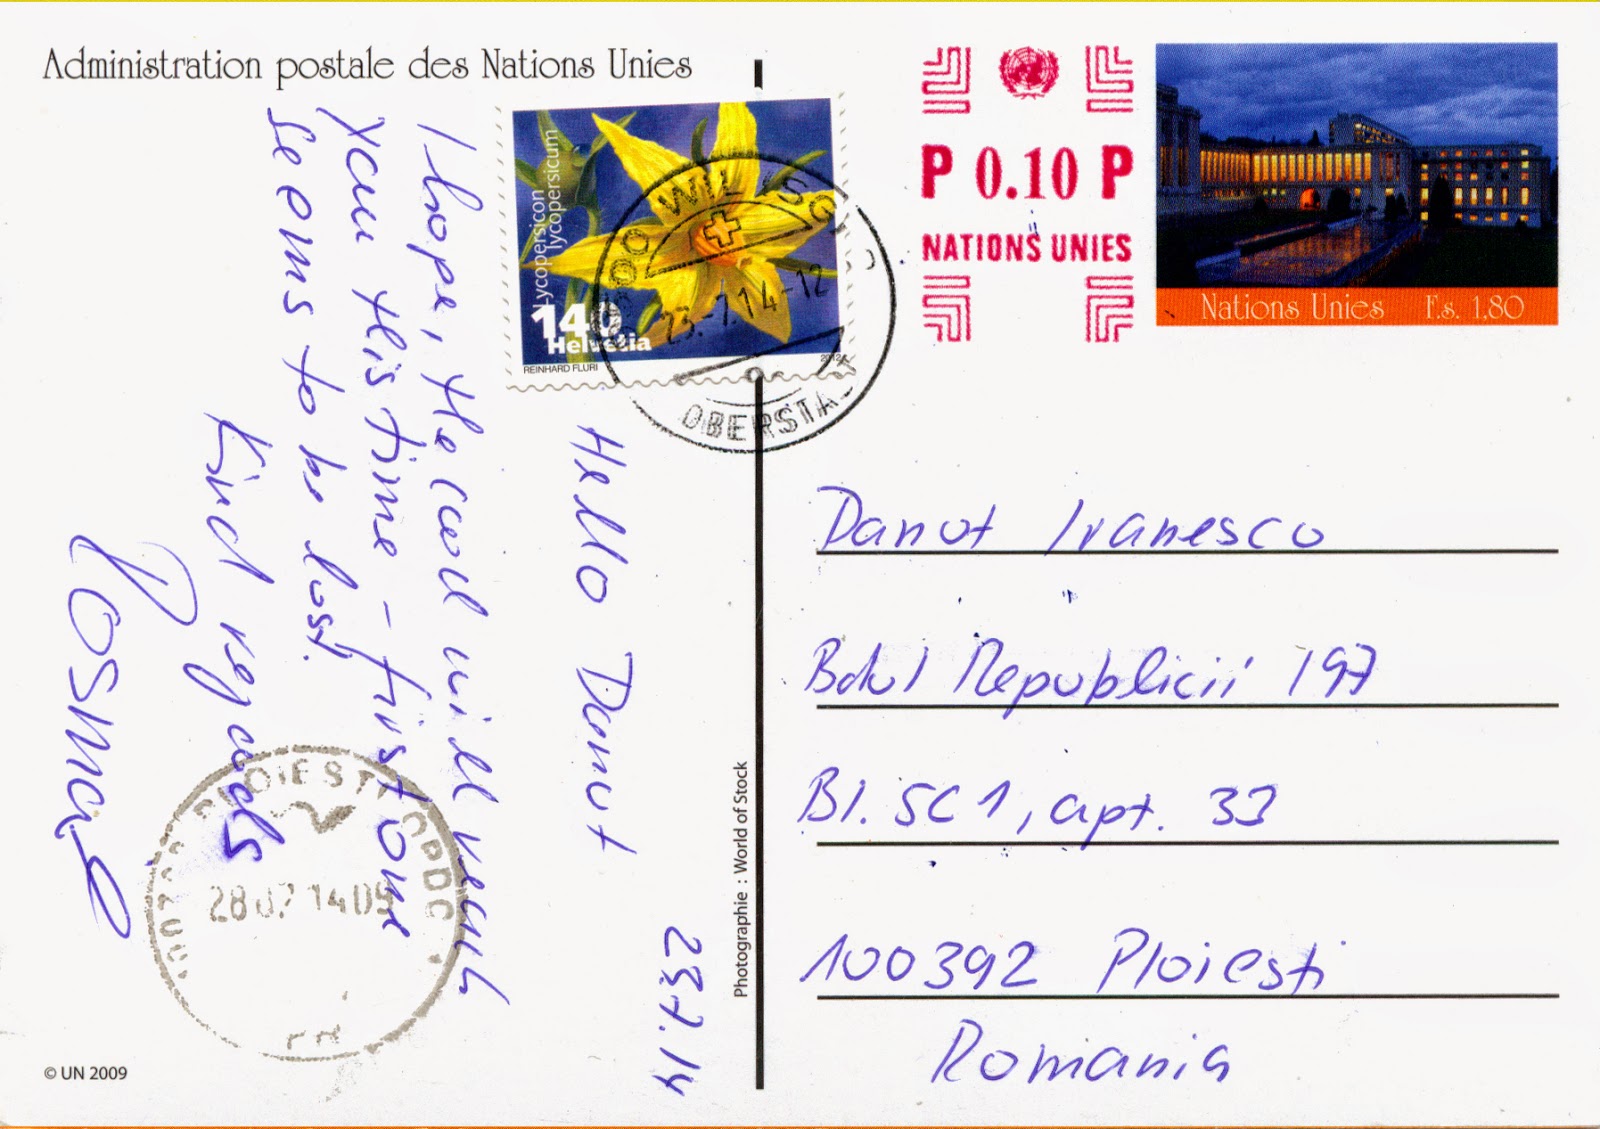 Administration postale des Nations Unies
P 0.10 P
NATIONS UNIES
Nations Unies F.s. 1,80
Lycopersicon
lycopersicum
140
Helvetia
REINHARD FLURI 2012
WIL
23.-7.14-12
OBERSTA
23.7.14
Hello Danut
I hope, the card will reach
you this time - first one
seems to be lost.
Kind regards
Danut Ivanesco
Bdul Republicii 197
Bl. SC1, apt. 33
100392 Ploiesti
Romania
PLOIESTI
28 07 14 09
Photographie : World of Stock
© UN 2009